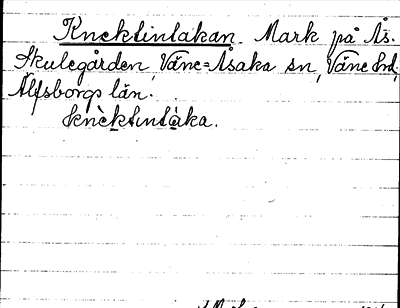 Knektintakan. Mark på Ås.
Skulegården, Väne-Åsaka sn, Väne hd,
Älfsborgs län.
knèktintàka.